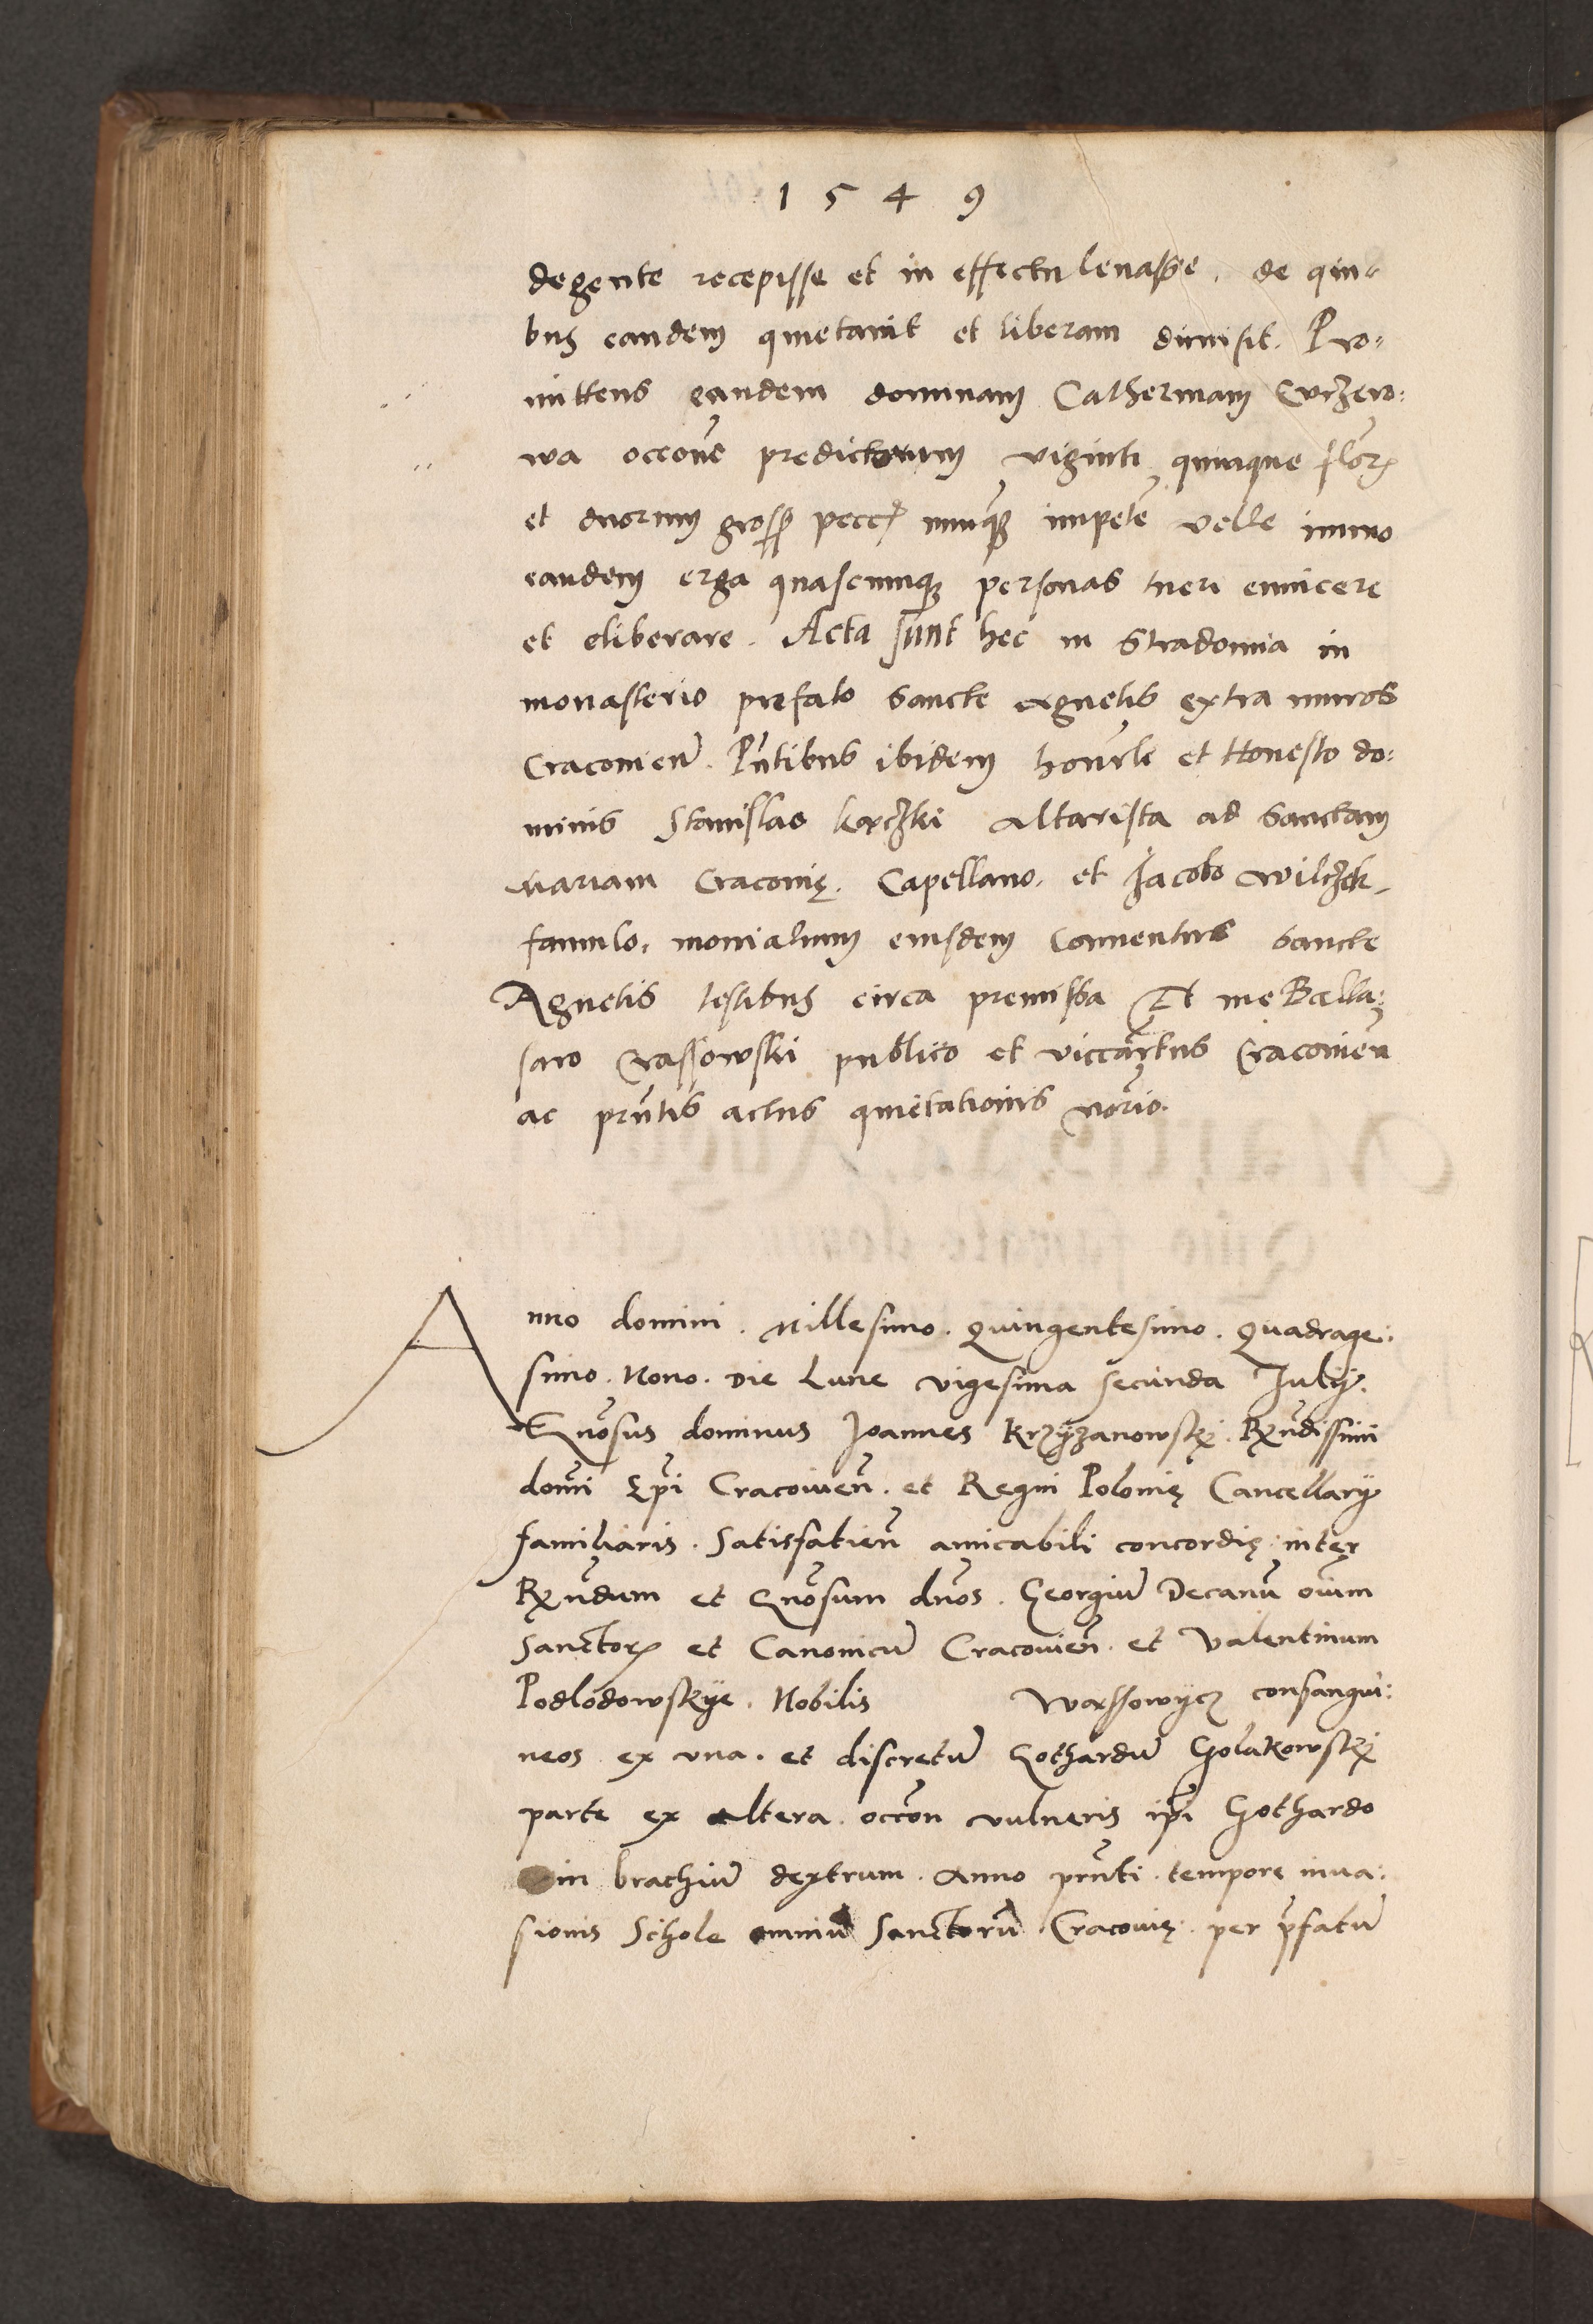 1549
degente recepisse et in effectu levasse. de qui-
bus eandem quietavit et liberam dimisit. Pro-
mittens eandem dominam Catherinam Curzeio-
wa occone predictorum viginti quinque flor
et duorum gross pecc nunq impete velle immo
eandem erga quascumq personas tueri evincere
et eliberare. Acta sunt hec in Stradomia in
monasterio prefato Sancte Agnetis extra muros
Cracovien. Pntibus ibidem honrle et Honesto do:
minis Stanislao kxczki Altarista ad Sanctam
Mariam Cracovię. Capellano. et Jacobo Wilczek
famulo. monialium eiusdem Conventus Sancte
Agnetis testibus circa premissa Et me Balta:
saro Crassowski publico et viccartus Cracovien
ac prntis actus quietationis norio.
Anno domini. Millesimo. Quingentesimo. Quadrage:
simo. Nono. Die Lune vigesima secunda Julij.
Gnosus dominus Joannes Krzÿzanowskj. Rxndissimi
domi Epi Cracovien. et Regni Polonię Cancellarij
familiaris. Satisfatien amicabili concordię inter
Rxndum et Gnosum dnos. Georgiu Decanu oium
Sanctor et Canonicu Cracovien. et Valentinum
Podlodowskÿe. Nobilis Warssowÿcz consangui:
neos ex una. et discretu Gothardu Golakowskj
parte ex altera. occon vulneris ipi Gothardo
in brachiu dextrum. Anno prnti. tempore inva:
sionis Schole omniu Sanctoru Cracovię. per pfatu